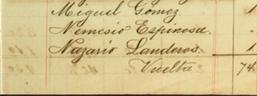 Miguel Gomez 1
Nemesio Espinosa
Nazario Landeros 1
Vuelta 74